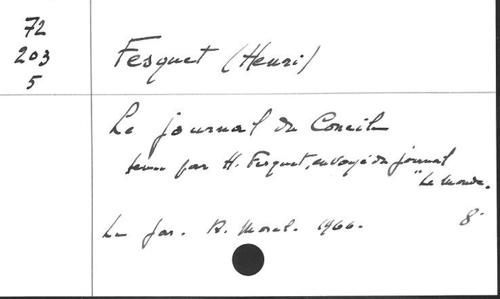 72
203
5
Fesquet (Henri)
Le journal du Concile
tenu par H. Fesquet, envoyé du journal
"Le Monde.
Le Jas. R. Morel. 1966. 8°